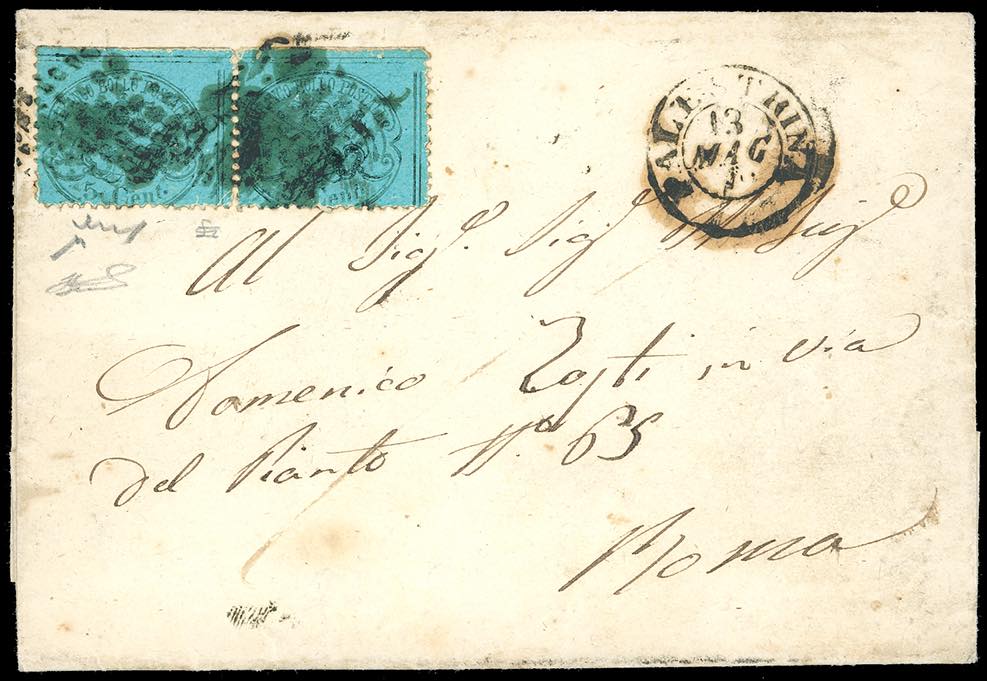 BOLLO POSTALE
BOLLO POSTALE
5 Cent.
PALESTRINA
13
MAG
Al Sigr. Sigr. Il Sigr
Domenico Zasti in via
del Pianto No. 65
Roma